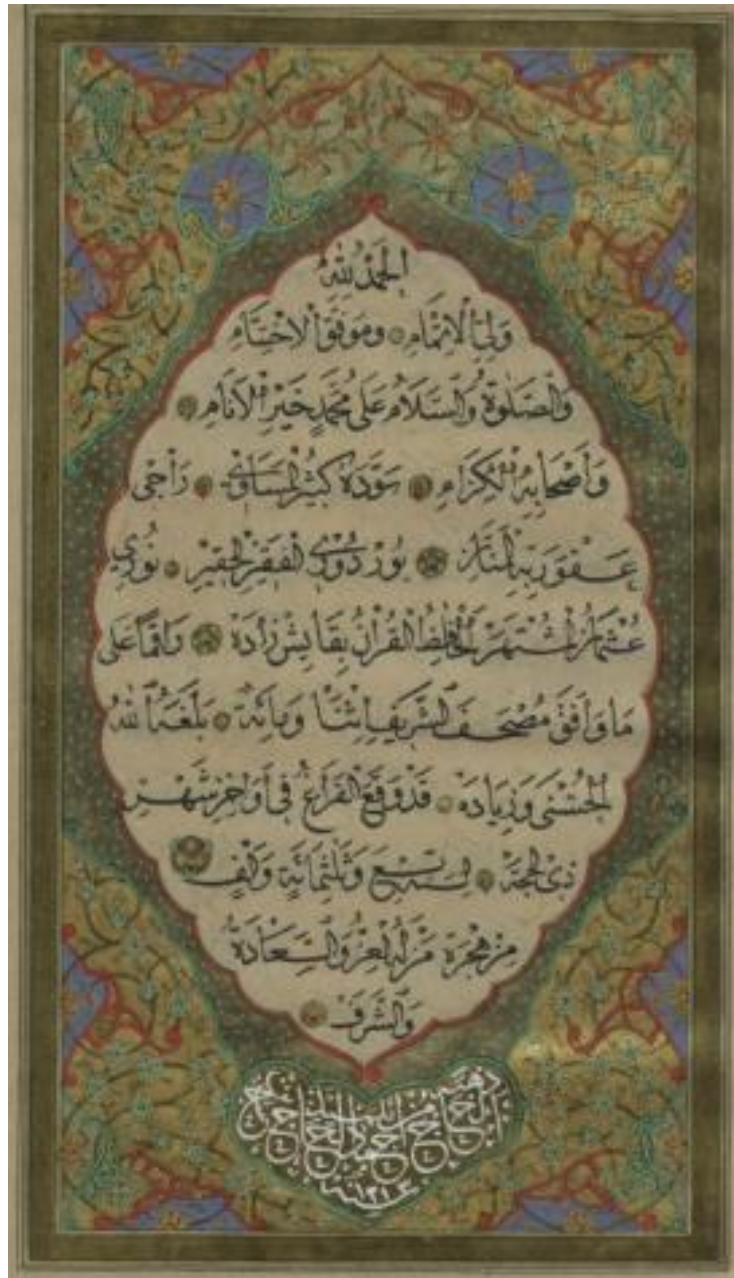 الحمد لله
ولي الإتمام وموفق الاختتام
والصلوة والسلام على محمد خير الأنام
وأصحابه الكرام سوده كثير المساوئ راجي
عفو ربه المنان بوردوري الفقير الحقير نوري
عثمان المشتهر لحافظ القرآن بقايش زاده واقفا على
ما وافق مصحف الشريف اثنا ومائة بلغه الله
الحسنى وزيادة قد وقع الفراغ في أواخر شهر
ذي الحجة لسنة تسع وثلثمائة وألف
من هجرة من له العز والسعادة
والشرف
ذهبه الحاج